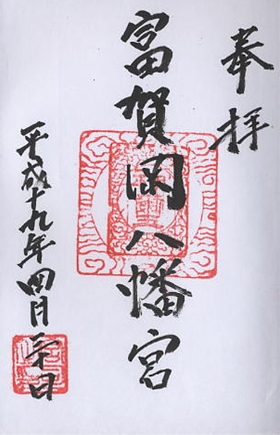 奉拝
富賀岡八幡宮
平成十九年四月三十日